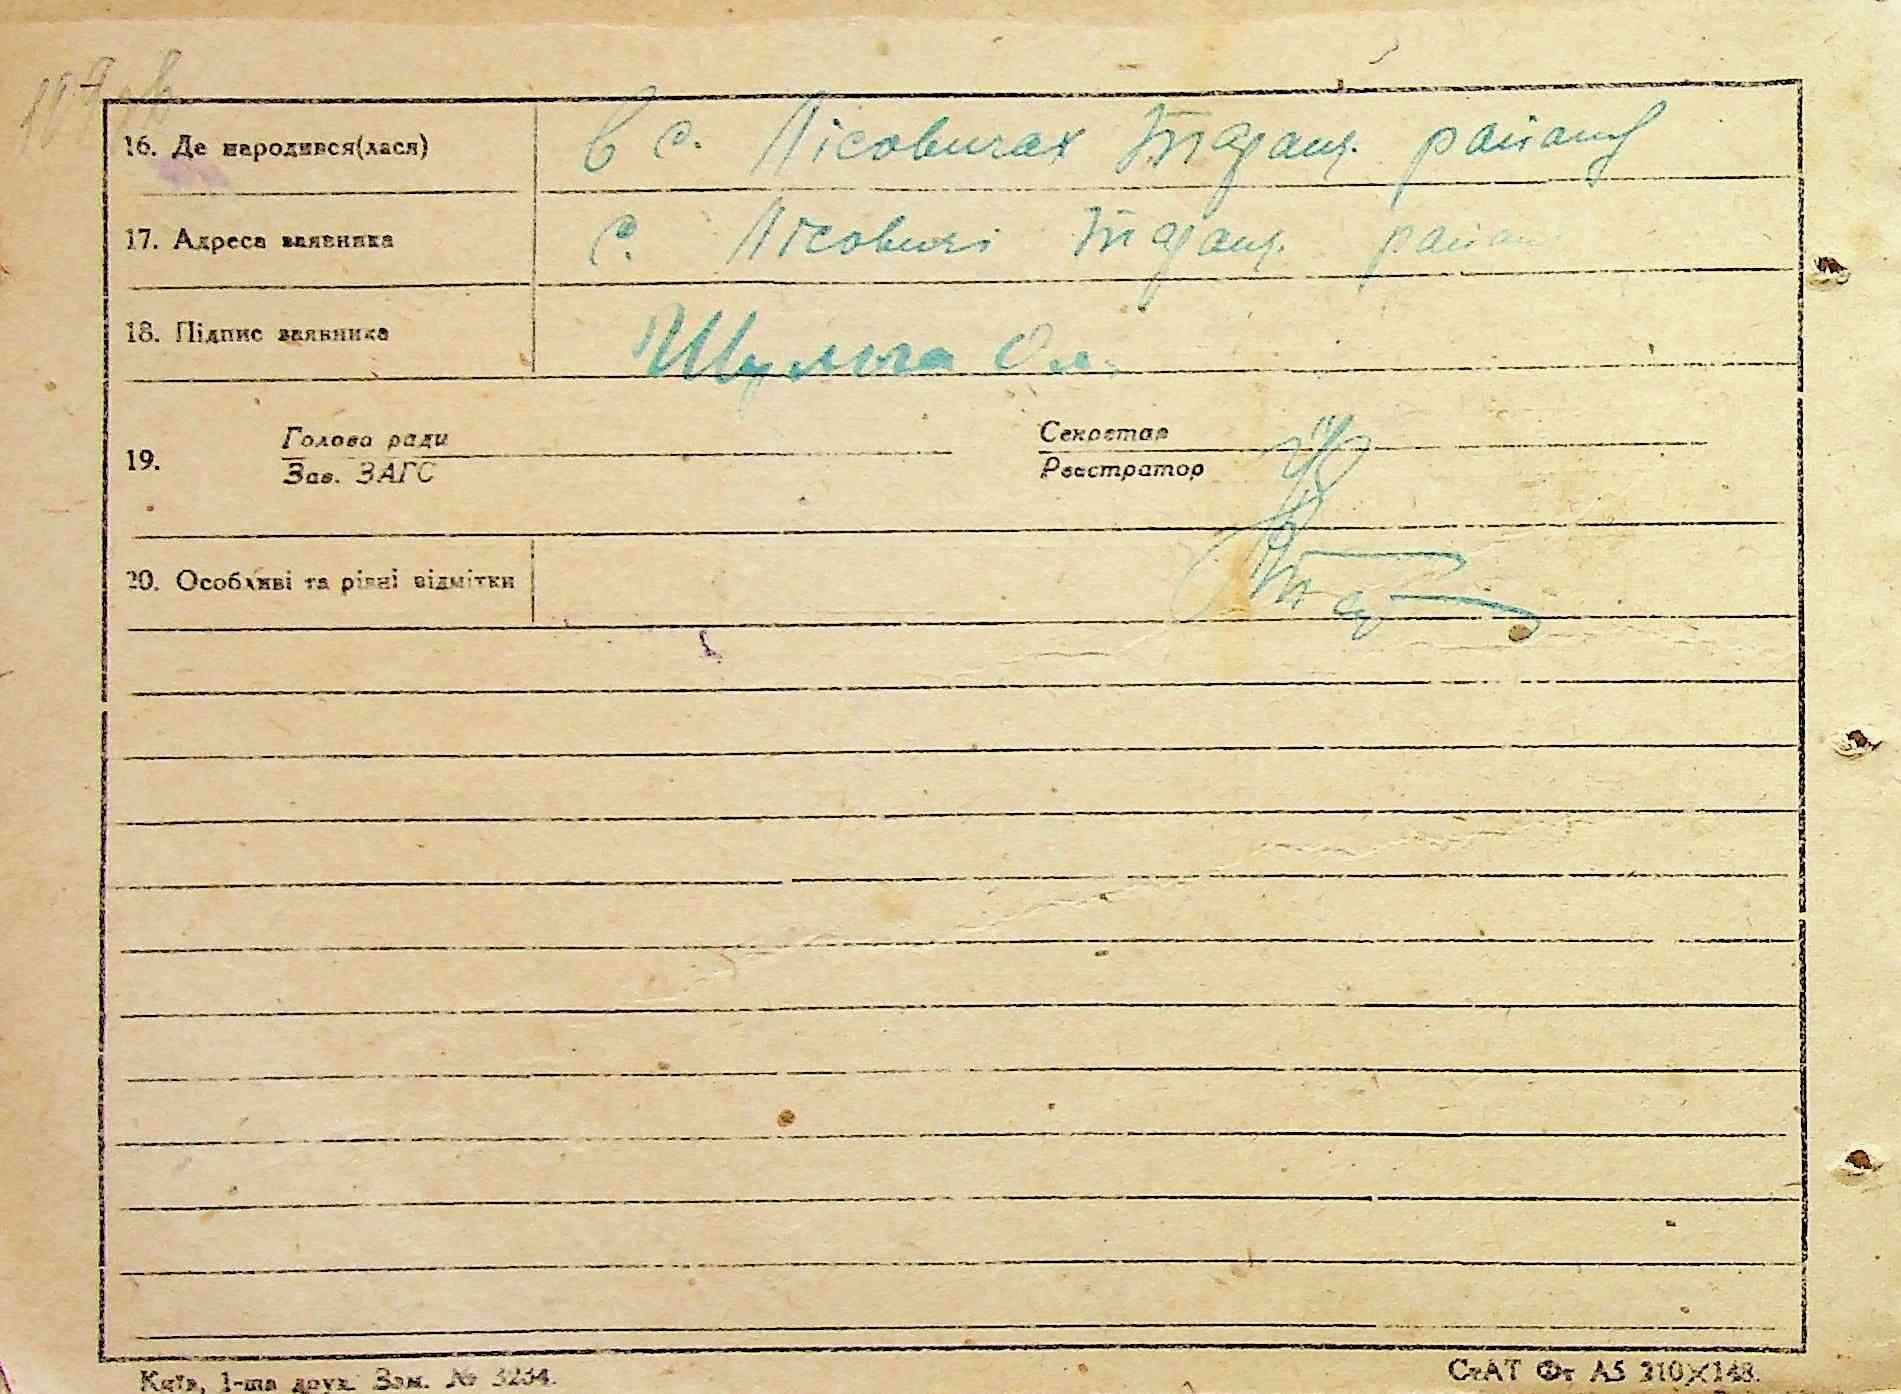 16. Де народився(лася) в с. Лісовичах Таращ. району
17. Адреса заявника с. Лісовичі Таращ. району
18. Підпис заявника Шульга Ол.
Голова ради Секретар
19.
Зав. ЗАГС Реєстратор
20. Особливі та різні відмітки
Київ, 1-ша друк. Зам. № 3234.
СтАТ Фт А5 210×148.